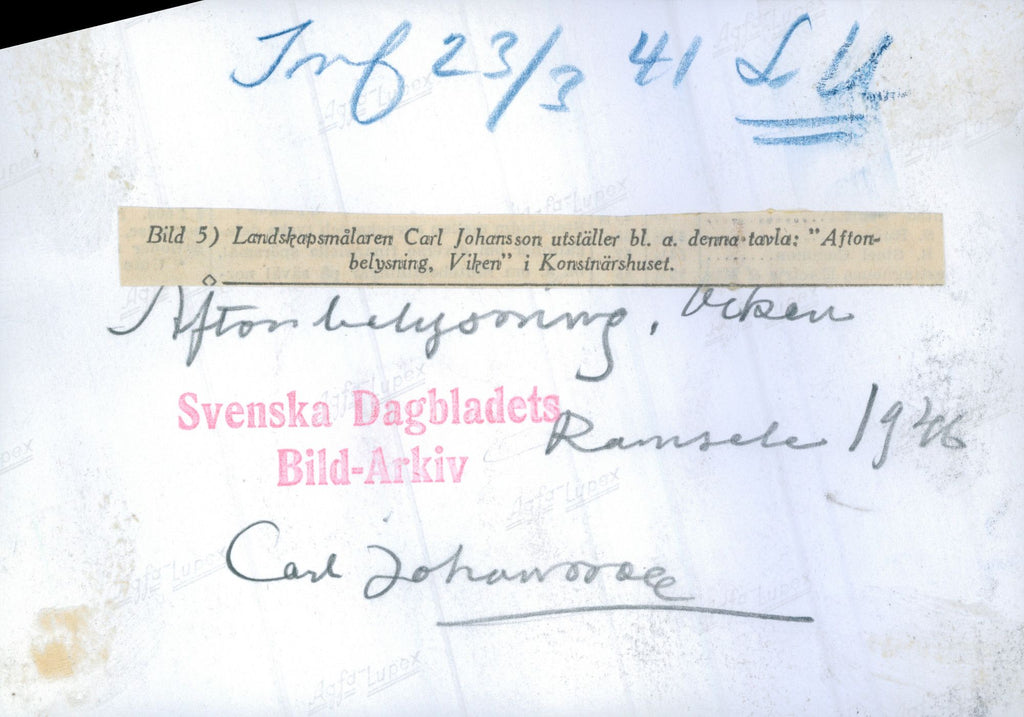 Inf 23/3 41 S U
Bild 5) Landskapsmålaren Carl Johansson utställer bl. a. denna tavla: "Afton-
belysning, Viken" i Konstnärshuset.
Aftonbelysning, Viken
Svenska Dagbladets
Bild-Arkiv
Ramsele 1946
Carl Johansson
Agfa-Lupex